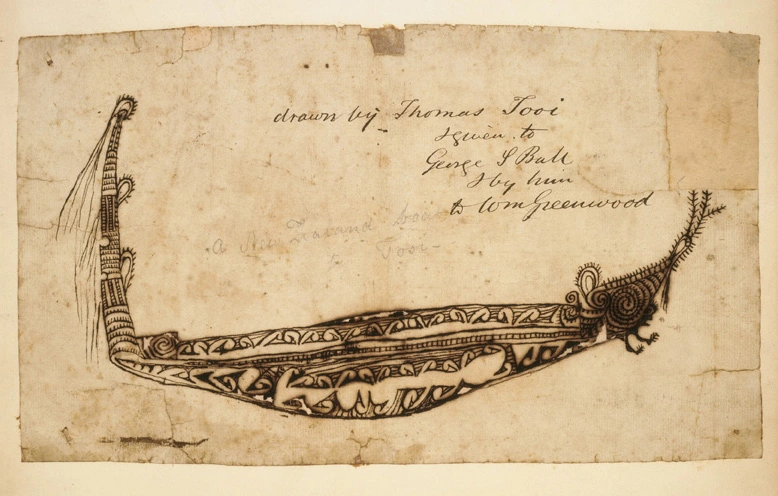 drawn by Thomas Tooi
& given to
George S Bull
& by him
to Wm Greenwood
A New Zealand
Tooi